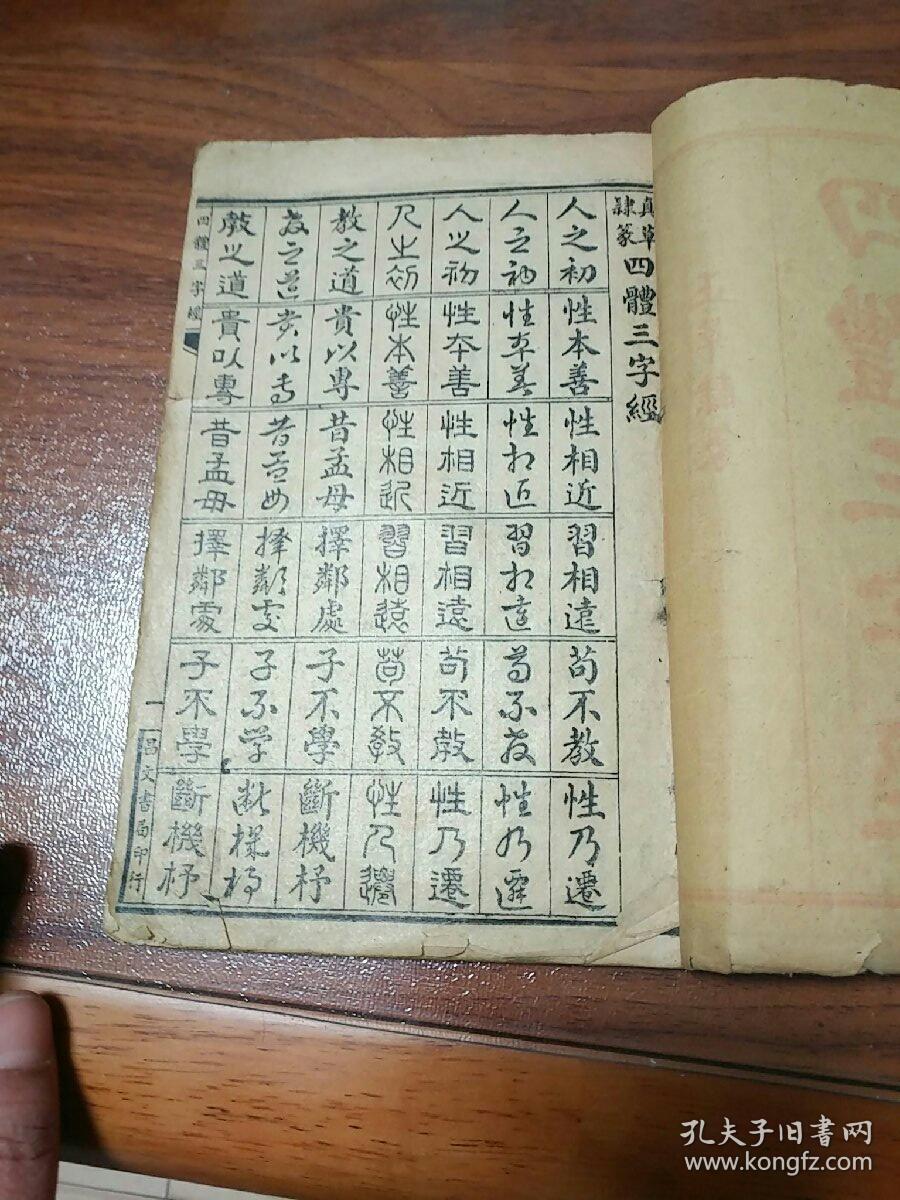 真草
隸篆
四體三字經
人之初 性本善 性相近 習相遠 苟不教 性乃遷
人之初 性本善 性相近 習相遠 苟不教 性乃遷
人之初 性本善 性相近 習相遠 苟不教 性乃遷
人之初 性本善 性相近 習相遠 苟不教 性乃遷
教之道 貴以專 昔孟母 擇鄰處 子不學 斷機杼
教之道 貴以專 昔孟母 擇鄰處 子不學 斷機杼
教之道 貴以專 昔孟母 擇鄰處 子不學 斷機杼
四體三字經 一 昌文書局印行
孔夫子旧书网
www.kongfz.com